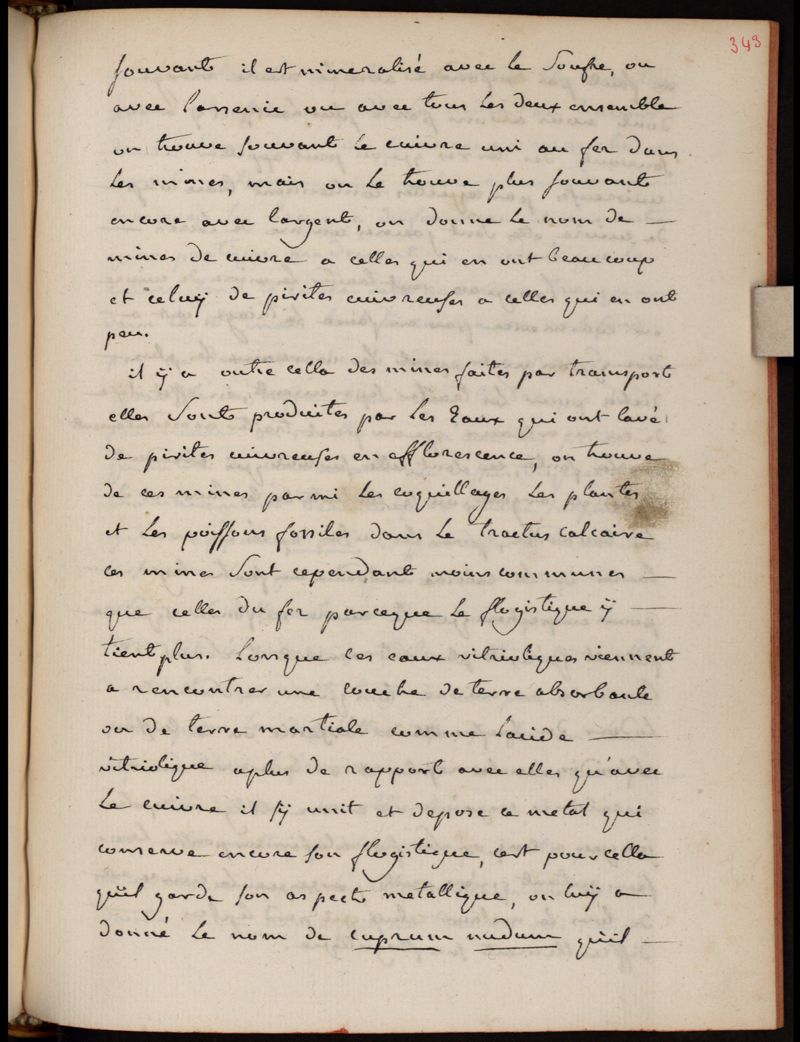 343
souvants il est mineralisé avec le Soufre, ou
avec larsenic ou avec tous les deux ensemble
on trouve souvants le cuivre uni au fer dans
les mines, mais on le trouve plus souvants
encore avec l'argent, on donne le nom de —
mines de cuivre a celles qui en ont beaucoup
et celuÿ de pirites cuivreuses a celles qui en ont
peu.
il ÿ a outre cella des mines faites par transport
elles Sont produites par les Eaux qui ont lavé
de pirites cuivreuses en efflorescence, on trouve
de ces mines parmi les coquillages les plantes
et les poissons fossiles dans le tractus calcaire
ces mines Sont cependant moins communes —
que celles du fer parceque le flogistique ÿ —
tient plus. Lorsque ces eaux vitrioliques viennent
a rencontrer une couche de terre absorbante
ou de terre martiale comme lacide —
vitriolique a plus de rapport avec elles qu'avec
le cuivre il s'ÿ unit et depose ce metal qui
conserve encore son flogistique, cest pour cella
qu'il garde son aspect metallique, on luÿ a
donné le nom de cuprum nudum qu'il —